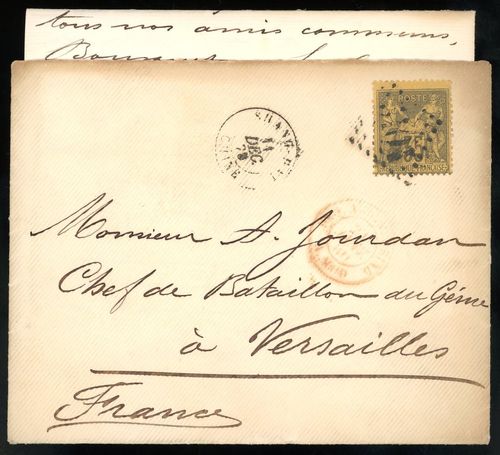 tous nos amis communs,
SHANG-HAI
11
DEC.
78
CHINE
POSTE
25
REPUBLIQUE FRANCAISE
Monsieur A. Jourdan
Chef de Bataillon du Génie
à Versailles
France